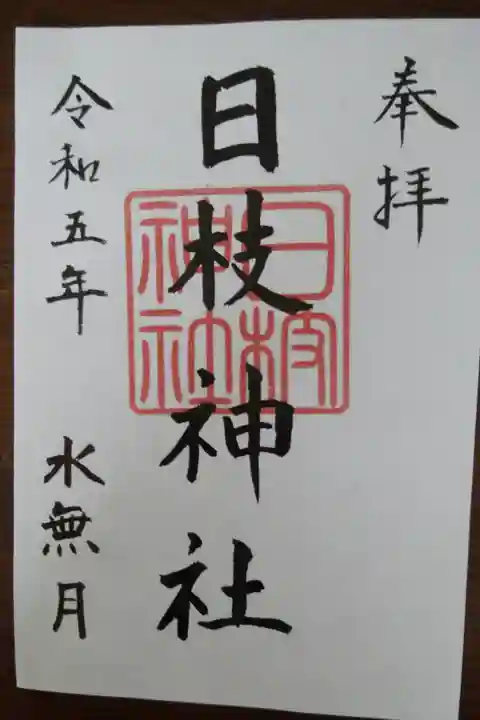 奉拝
日枝神社
日枝神社
令和五年 水無月